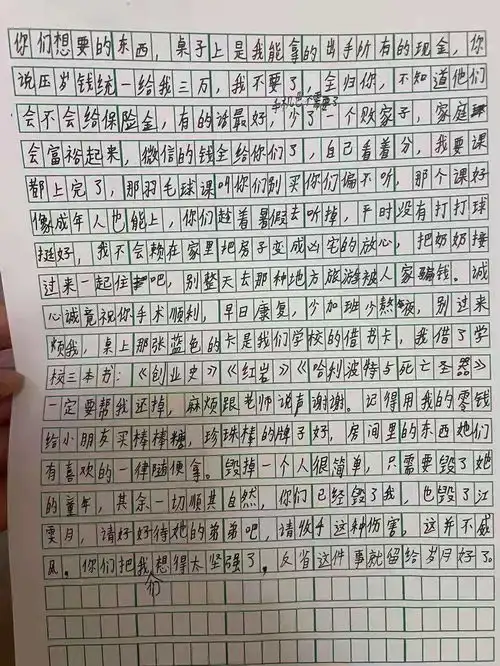 你们想要的东西，桌子上是我能拿的出手所有的现金，你
说压岁钱统一给我三万，我不要了，全归你，不知道他们
会不会给保险金，有的话最好，少了一个败家子，家庭
手机也不需要了
会富裕起来，微信的钱全给你们了，自己看着分，我要课
都上完了，那羽毛球课叫你们别买你们偏不听，那个课好
像成年人也能上，你们趁着暑假去听掉，平时没有打打球
挺好，我不会赖在家里把房子变成凶宅的放心，把奶奶接
过来一起住吧，别整天去那种地方旅游被人家骗钱。诚
心诚意祝你手术顺利，早日康复，少加班少熬夜，别过来
烦我，桌上那张蓝色的卡是我们学校的借书卡，我借了学
校三本书：《创业史》《红岩》《哈利波特与死亡圣器》
一定要帮我还掉，麻烦跟老师说声谢谢。记得用我的零钱
给小朋友买棒棒糖，珍珠棒的牌子好，房间里的东西她们
有喜欢的一律随便拿。毁掉一个人很简单，只需要毁了她
的童年，其余一切顺其自然，你们已经毁了我，也毁了江
雯月，请好好待她的弟弟吧，请收手这种伤害，这并不威
风。你们把我们想得太坚强了，反省这件事就留给岁月好了。